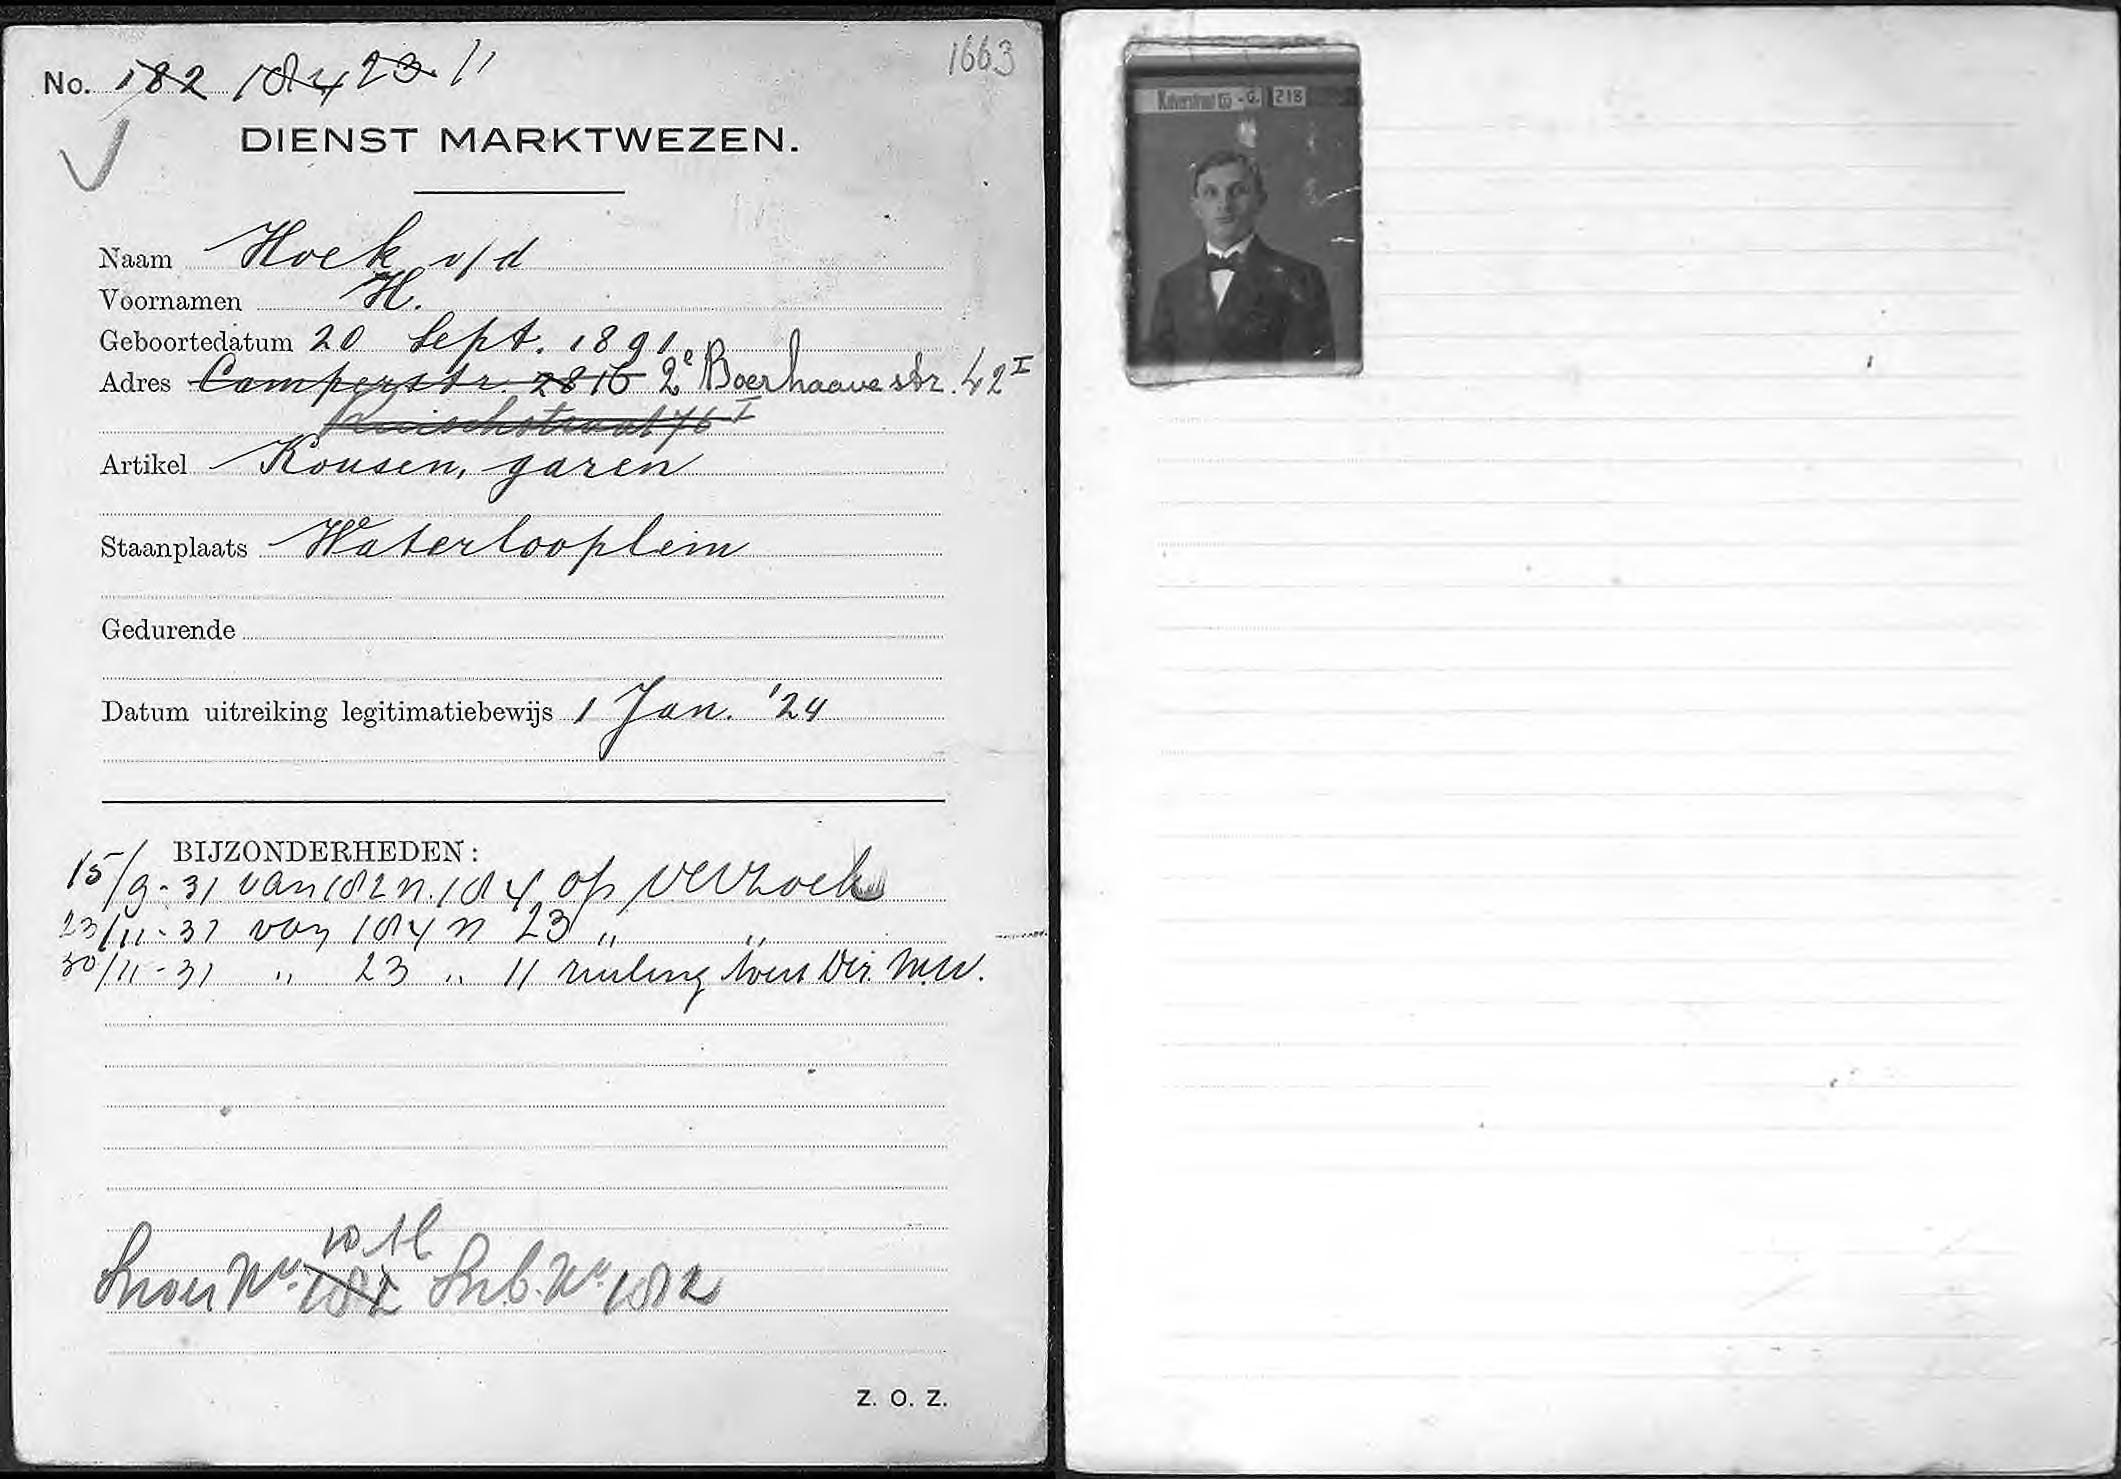 1663
No. 182 184 23. 11
DIENST MARKTWEZEN.
Naam Hoek v/d
Voornamen H.
Geboortedatum 20 Sept. 1891
Adres Camperstr. 28 2e Boerhaave str. 42 I
Ruischstraat 76 I
Artikel Kousen, garen
Staanplaats Waterlooplein
Gedurende
Datum uitreiking legitimatiebewijs 1 Jan. '24
BIJZONDERHEDEN:
15/9-31 van 182 n. 184 op verzoek
23/11-31 van 184 n 23 " "
30/11-31 " 23 " 11 ruiling Dir. M.W.
No. 182 No. 182
Z. O. Z.
Kalverstraat - G. 218